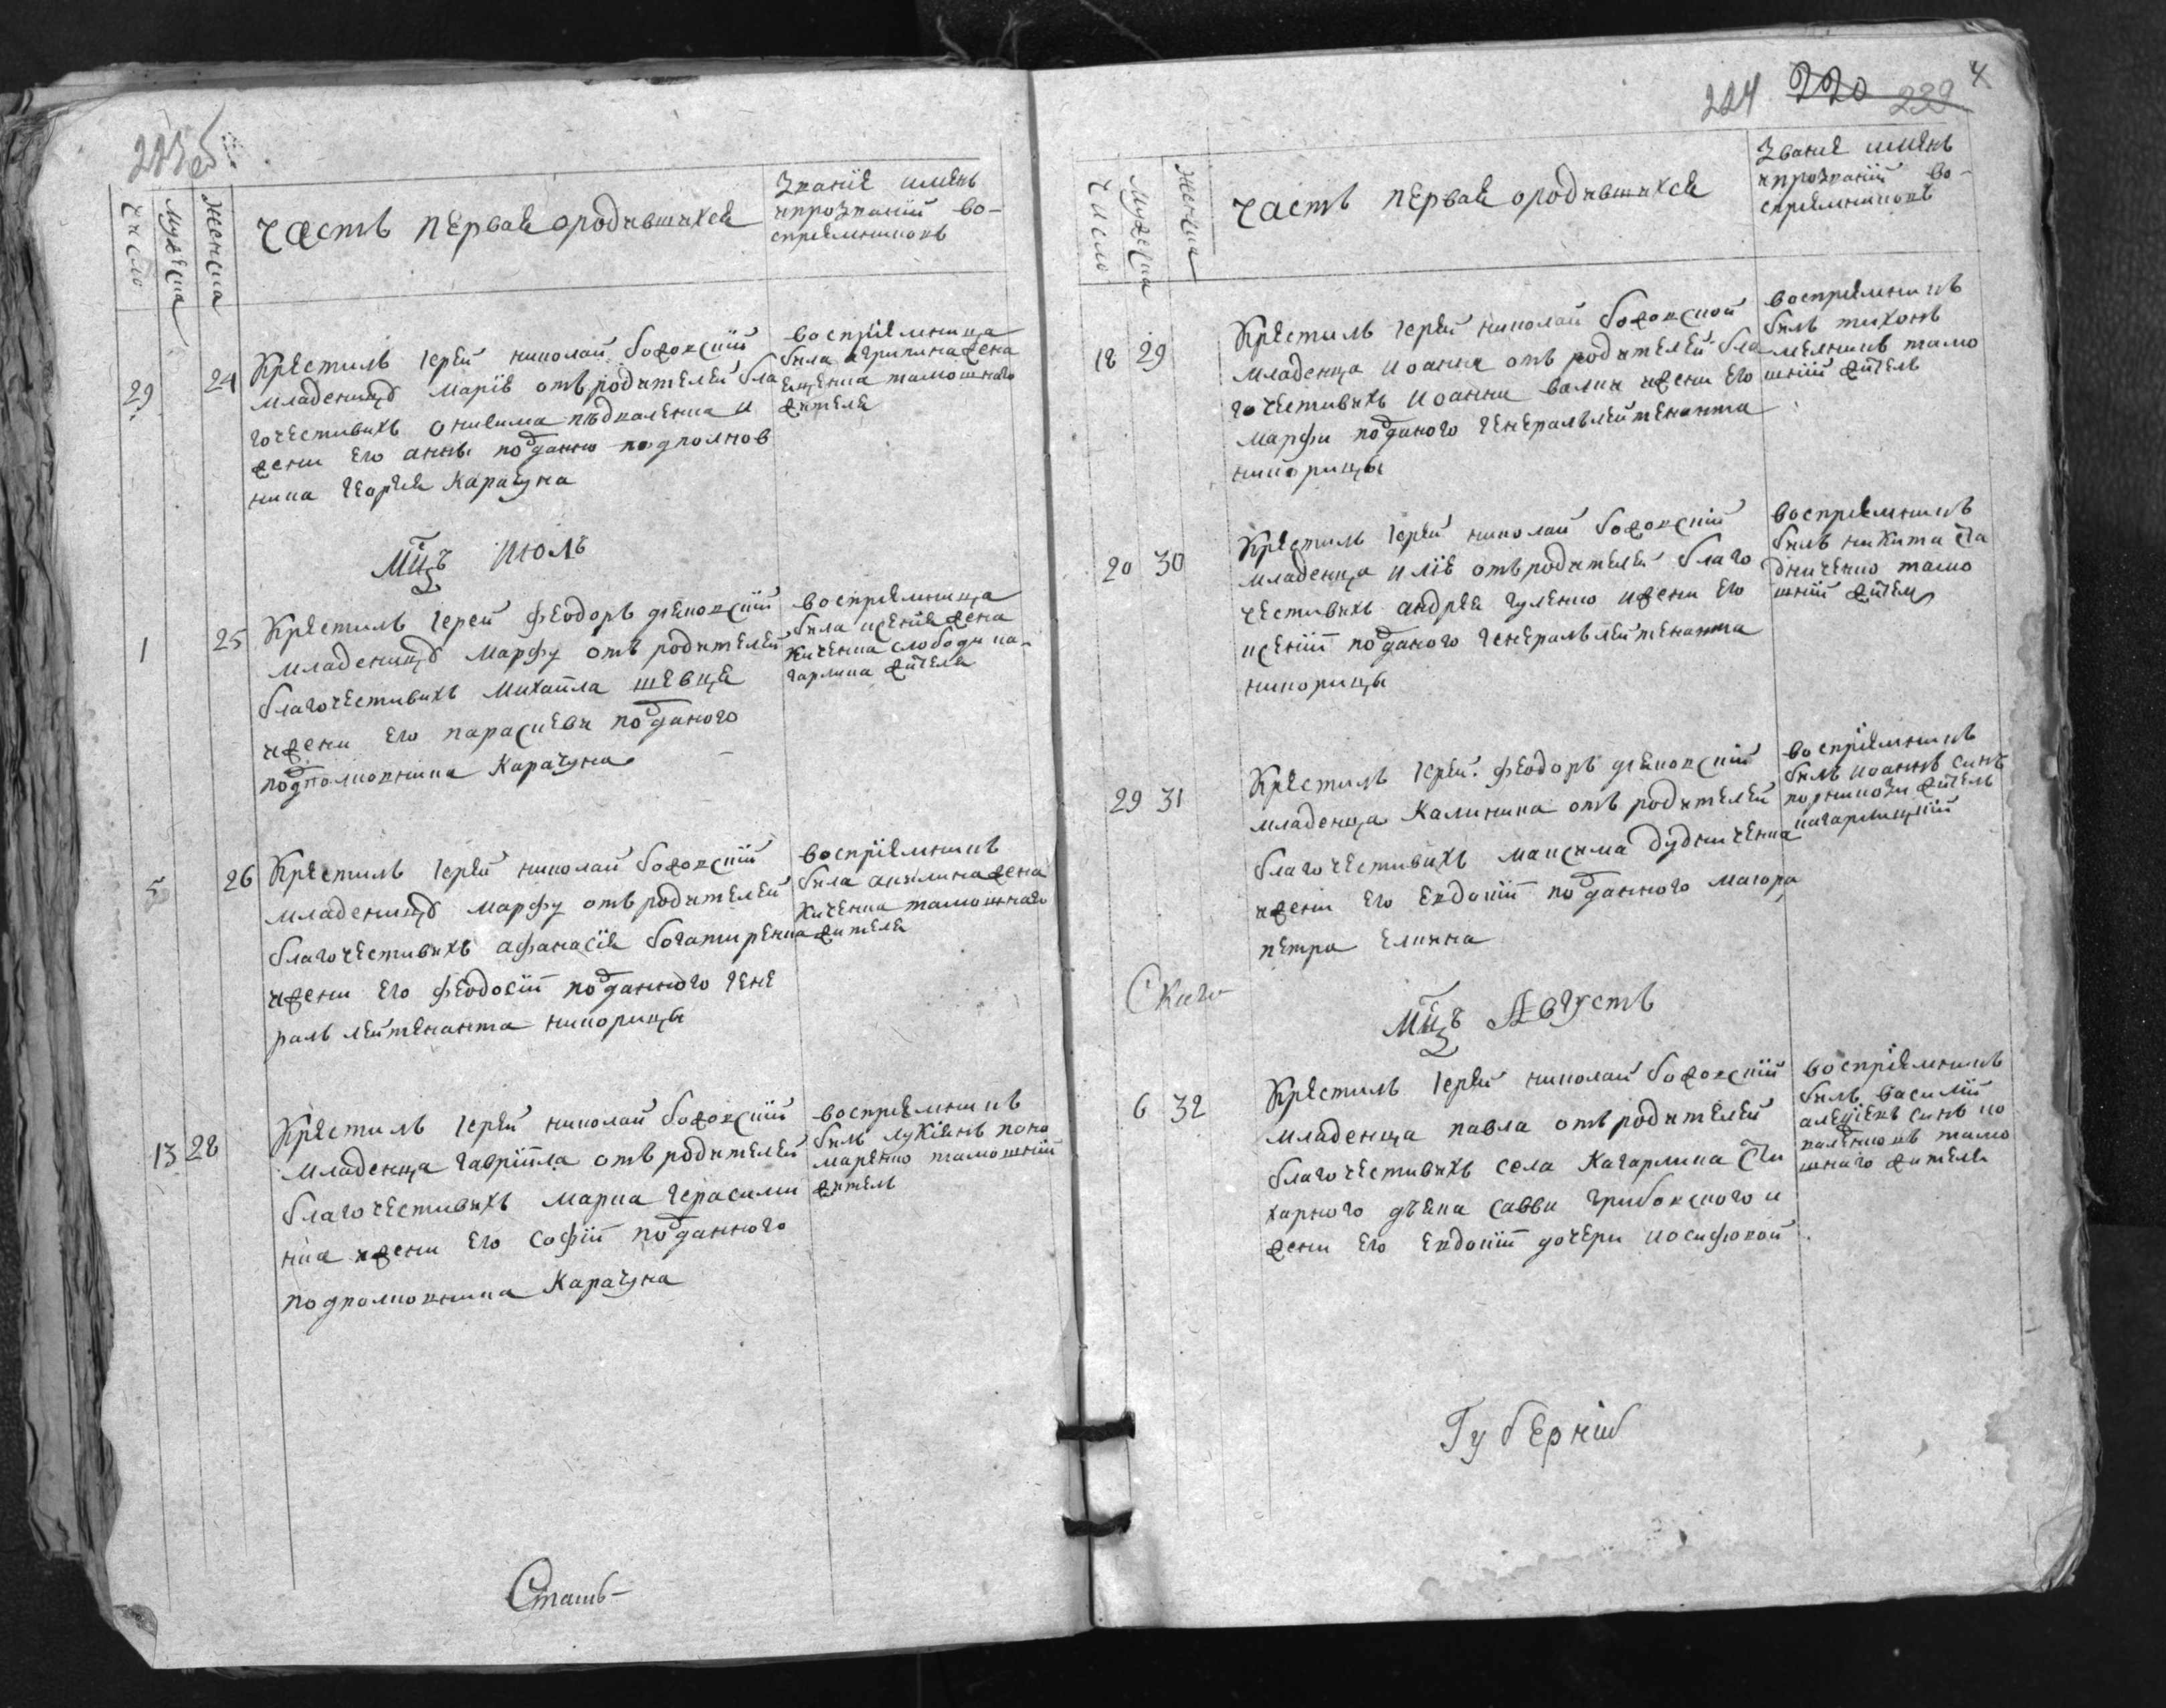 Число
Мужеска
Женска
Часть первая ородившихся
Званіе именъ
ипрозваній во-
спріемниковъ
29
24
Крестилъ Іерей николай божовскій
младеницу Марію отъ родителей бла
гочестивихъ онисима
жени его анны подданно подполков
ника Георгия Карачуна
воспріемница
била агрипина жена
тамошнаго
жителя
Мцъ Июль
1
25
Крестилъ Іерей Феодоръ
младеницу Марфу отъ родителей
благочестивихъ Михаила шевця
ижени его параскеви подданого
подполковника Карачуна
воспріемница
била ксенія жена
Кученка слободи ка-
гарлика жителя
5
26
Крестилъ Іерей николай божовскій
младеницу марфу отъ родителей
благочестивихъ афанасія богатиренка
ижени его феодосіи подданного гене
ралъ лейтенанта никорици
воспріемникъ
била акилина жена
Кученка тамошнаго
жителя
13 28
Крестилъ Іерей николай божовскій
младенца гавріила отъ родителей
благочестивихъ марка герасимен
нка ижени его софіи подданного
подполковника Карачуна
воспріемникъ
билъ лукіянъ поно
маренко тамошній
житель
Стать-
224 220 229 4
Число
Мужеска
Женска
Часть первая ородившихся
Званіе именъ
ипрозваній во-
спріемниковъ
18 29
Крестилъ Іерей николай божовской
младенца иоанна отъ родителей бла
гочестивихъ иоанна ижени его
марфи подданого генералълейтенанта
никорици
воспріемникъ
билъ тихонъ
мелникъ тамо
шній житель
20 30
Крестилъ Іерей николай божовскій
младенца илію отъ родителей благо
честивихъ андрея гуленко ижени его
ксеніи подданого генералълейтенанта
никорици
воспріемникъ
билъ никита Ста
дниченко тамо
шній житель
29 31
Крестилъ Іерей феодоръ
младенца Калиника отъ родителей
благочестивихъ максима дудниченка
ижени его евдокіи подданного маіора
петра
воспріемникъ
билъ иоаннъ синъ
житель
кагарлицкій
Мцъ Августъ
6 32
Крестилъ Іерей николай божовскій
младенца павла отъ родителей
благочестивихъ села Кагарлика Сти
харного дъяка савви грибовского и
жени его евдокіи дочери иосифовой
воспріемникъ
билъ василій
алексіевъ синъ ко
валенковъ тамо
шнаго жителя
Губерніи